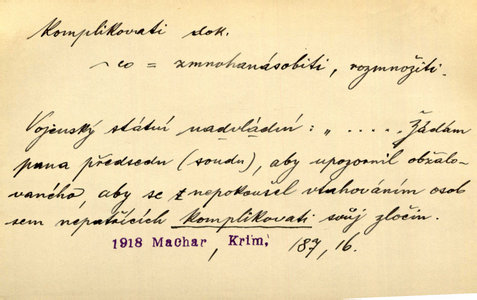 Komplikovati dok.
~ co = zmnohanásobiti, rozmnožiti.
Vojenský státní nadvládní : „ . . . . . Žádám
pana předsedu (soudu), aby upozornil obžalo-
vaného, aby se nepokoušel vtahováním osob
sem nepatřících komplikovati svůj zločin.
1918 Machar, Krim, 187, 16.